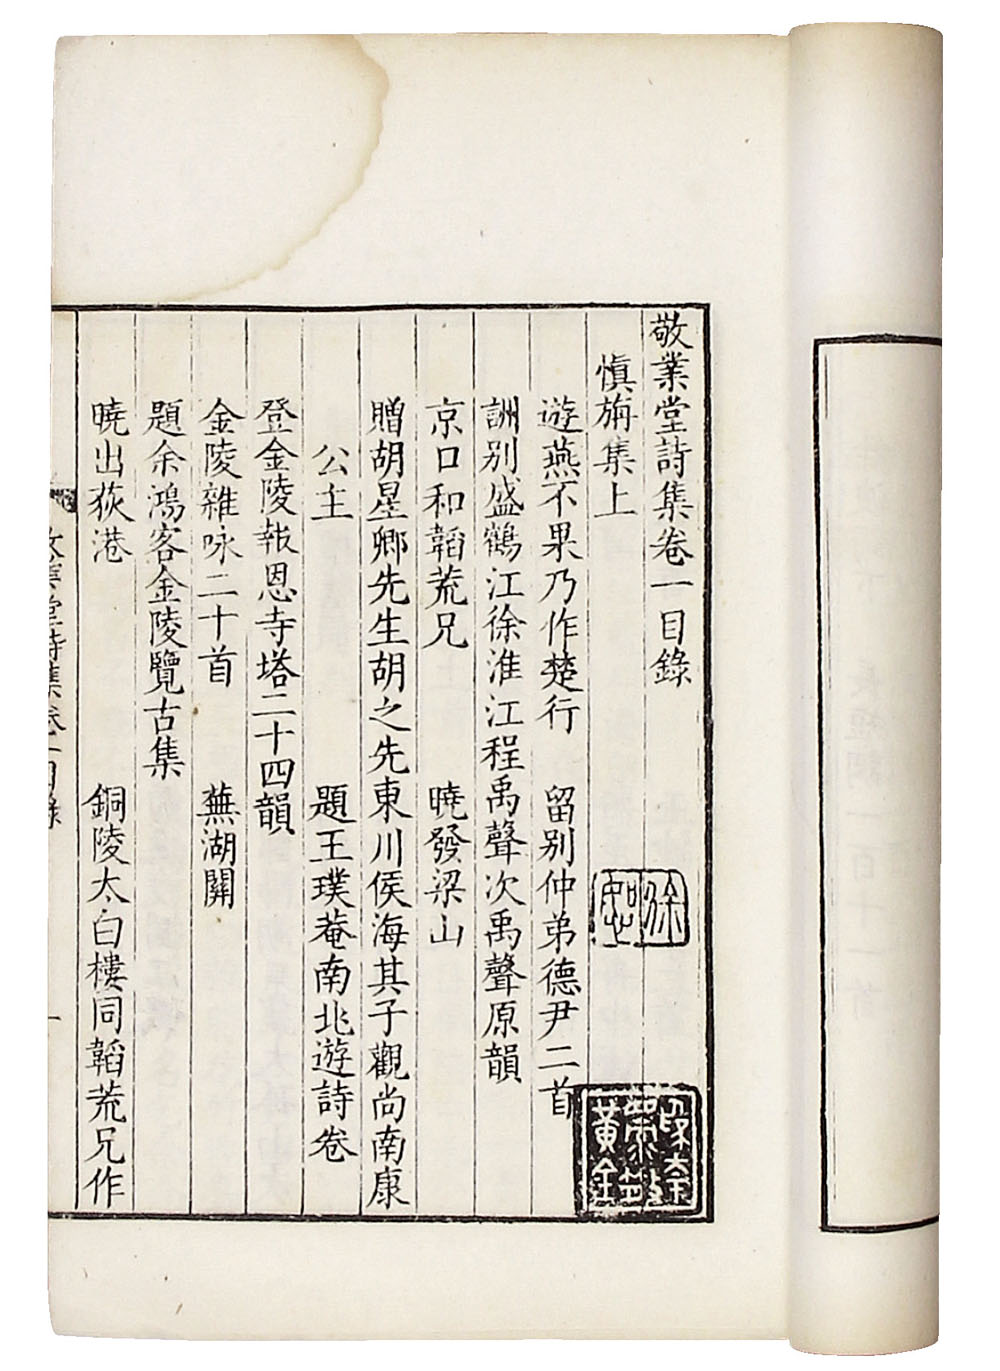 敬業堂詩集卷一目錄
慎旃集上
遊燕不果乃作楚行　留别仲弟德尹二首
詶别盛鶴江徐淮江程禹聲次禹聲原韻
京口和韜荒兄　曉發梁山
贈胡星卿先生胡之先東川侯海其子觀尚南康
公主　題王璞菴南北遊詩卷
登金陵報恩寺塔二十四韻
金陵雜咏二十首　蕪湖關
題余鴻客金陵覽古集
曉出荻港　銅陵太白樓同韜荒兄作
敬業堂詩集卷一目錄　一